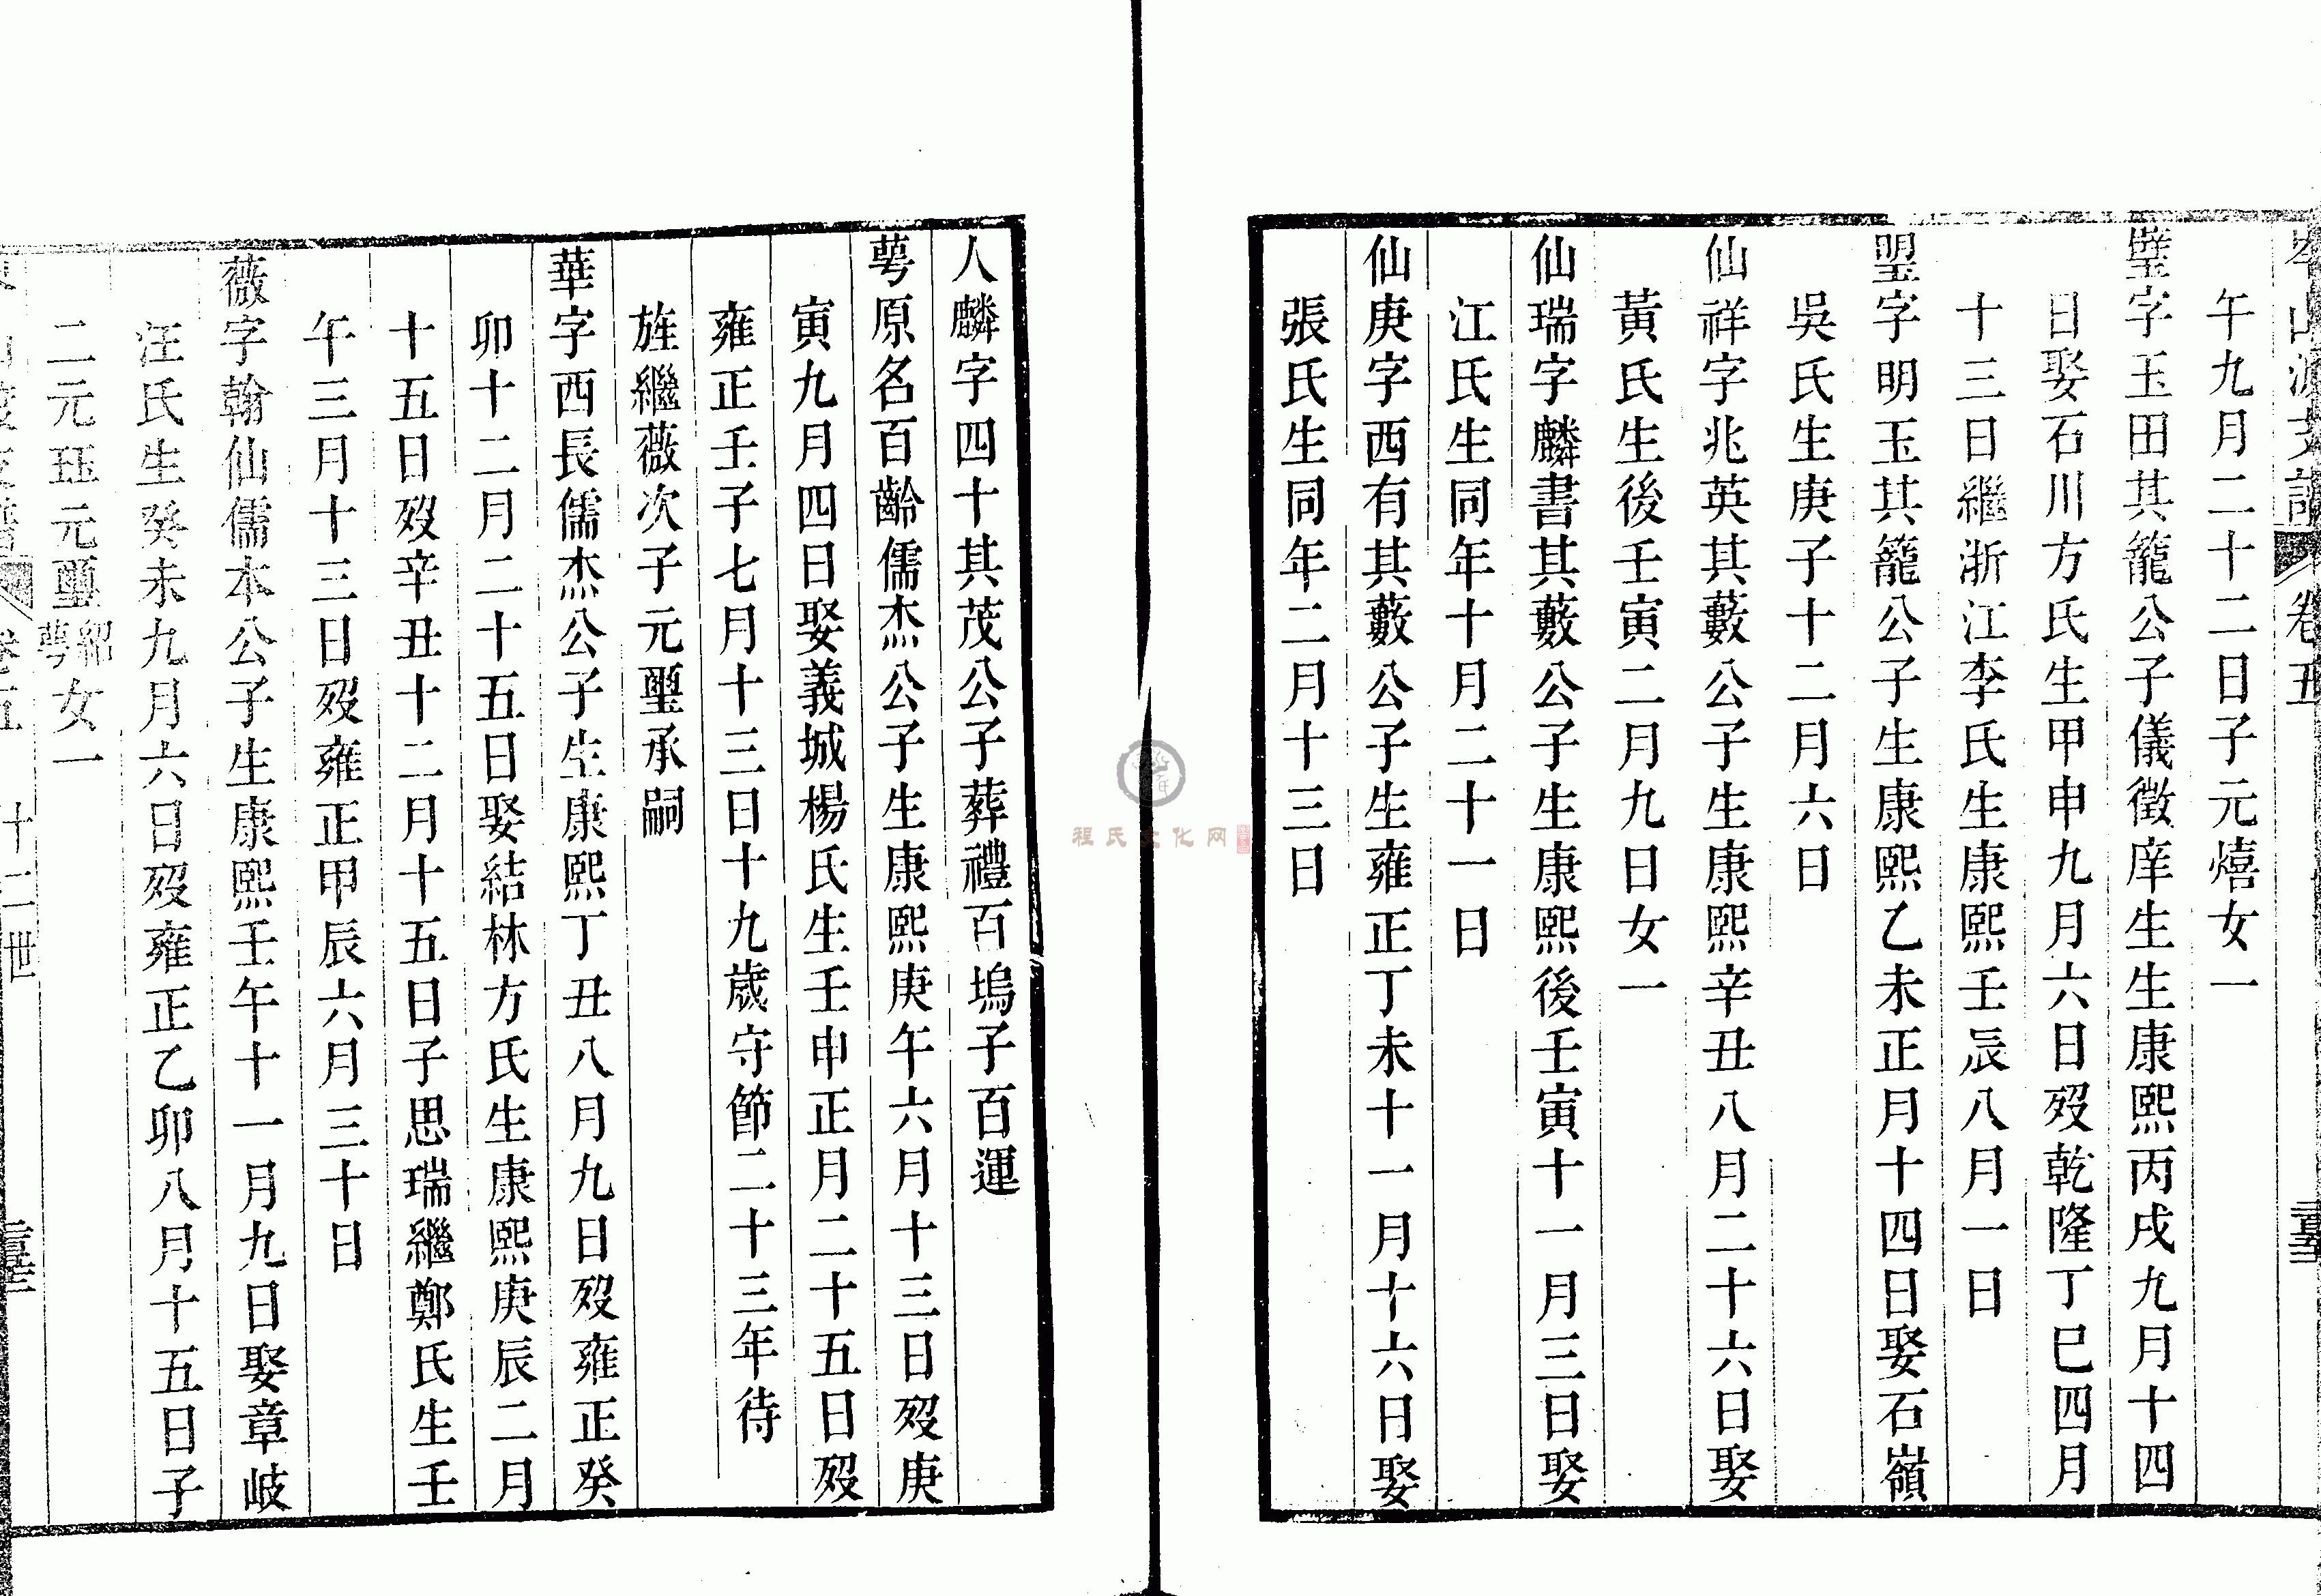 岑山渡支譜 卷五
午九月二十二日子元熺女一
璧字玉田其籠公子儀徵庠生生康熙丙戌九月十四
日娶石川方氏生甲申九月六日歿乾隆丁巳四月
十三日繼浙江李氏生康熙壬辰八月一日
瑆字明玉其籠公子生康熙乙未正月十四日娶石嶺
吳氏生庚子十二月六日
仙祥字兆英其藪公子生康熙辛丑八月二十六日娶
黃氏生後壬寅二月九日女一
仙瑞字麟書其藪公子生康熙後壬寅十一月三日娶
江氏生同年十月二十一日
仙庚字西有其藪公子生雍正丁未十一月十六日娶
張氏生同年二月十三日
人麟字四十其茂公子葬禮百塢子百運
萼原名百齡儒杰公子生康熙庚午六月十三日歿庚
寅九月四日娶義城楊氏生壬申正月二十五日歿
雍正壬子七月十三日十九歲守節二十三年待
旌繼薇次子元璽承嗣
華字西長儒杰公子生康熙丁丑八月九日歿雍正癸
卯十二月二十五日娶結林方氏生康熙庚辰二月
十五日歿辛丑十二月十五日子思瑞繼鄭氏生壬
午三月十三日歿雍正甲辰六月三十日
薇字翰仙儒本公子生康熙壬午十一月九日娶章岐
汪氏生癸未九月六日歿雍正乙卯八月十五日子
二元珏元璽紹萼女一
卷五 十二世
程氏文化网